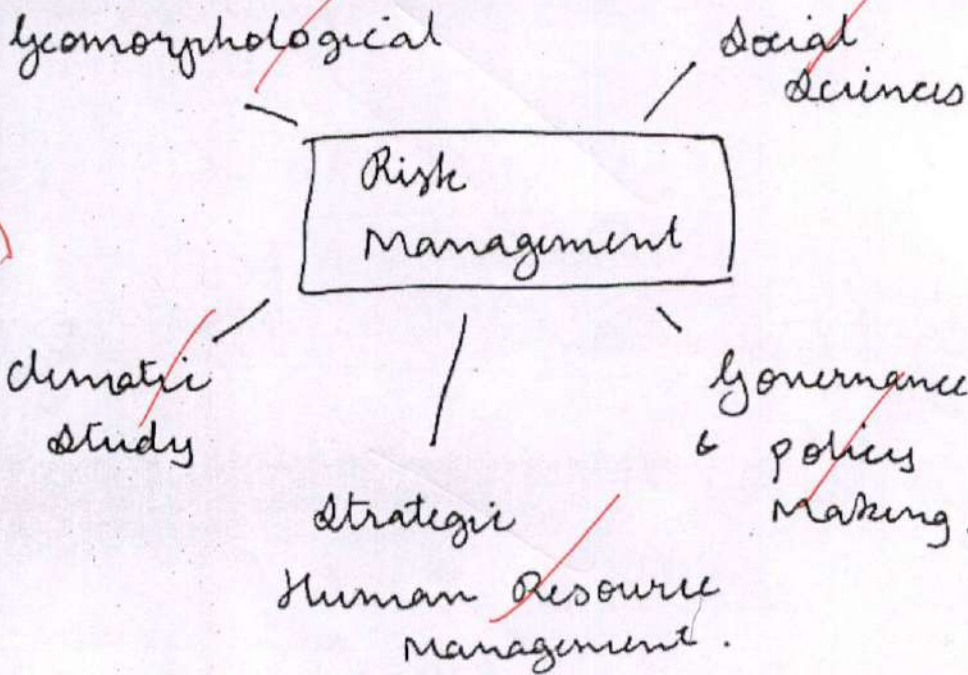 Geomorphological
Social
Sciences
Risk
Management
Climatic
Study
Governance
& policy
Making.
Strategic
Human Resource
Management.